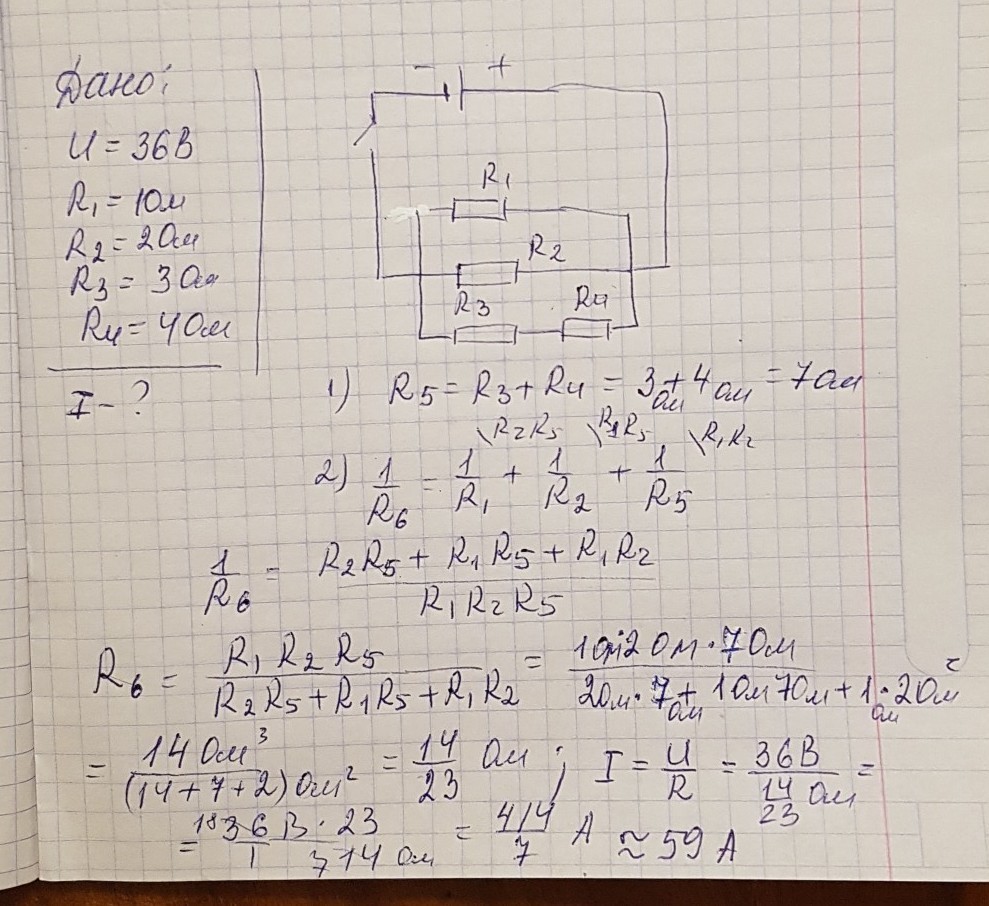 Дано:
U = 36В
R₁ = 1Ом
R₂ = 2Ом
R₃ = 3Ом
R₄ = 4Ом
I - ?
- +
R₁
R₂
R₃ R₄
1) R₅ = R₃ + R₄ = 3 Ом + 4 Ом = 7 Ом
\R₂R₅ \R₁R₅ \R₁R₂
2) 1/R₆ = 1/R₁ + 1/R₂ + 1/R₅
1/R₆ = (R₂R₅ + R₁R₅ + R₁R₂)/(R₁R₂R₅)
R₆ = (R₁R₂R₅)/(R₂R₅ + R₁R₅ + R₁R₂) = (1Ом·2Ом·7Ом)/(2Ом·7Ом + 1Ом7Ом + 1Ом·2Ом)
= 14 Ом³/(14+7+2)Ом² = 14/23 Ом ; I = U/R = 36В/(14/23 Ом) =
= (18 36 В · 23)/(1 7 14 Ом) = 414/7 А ≈ 59 А